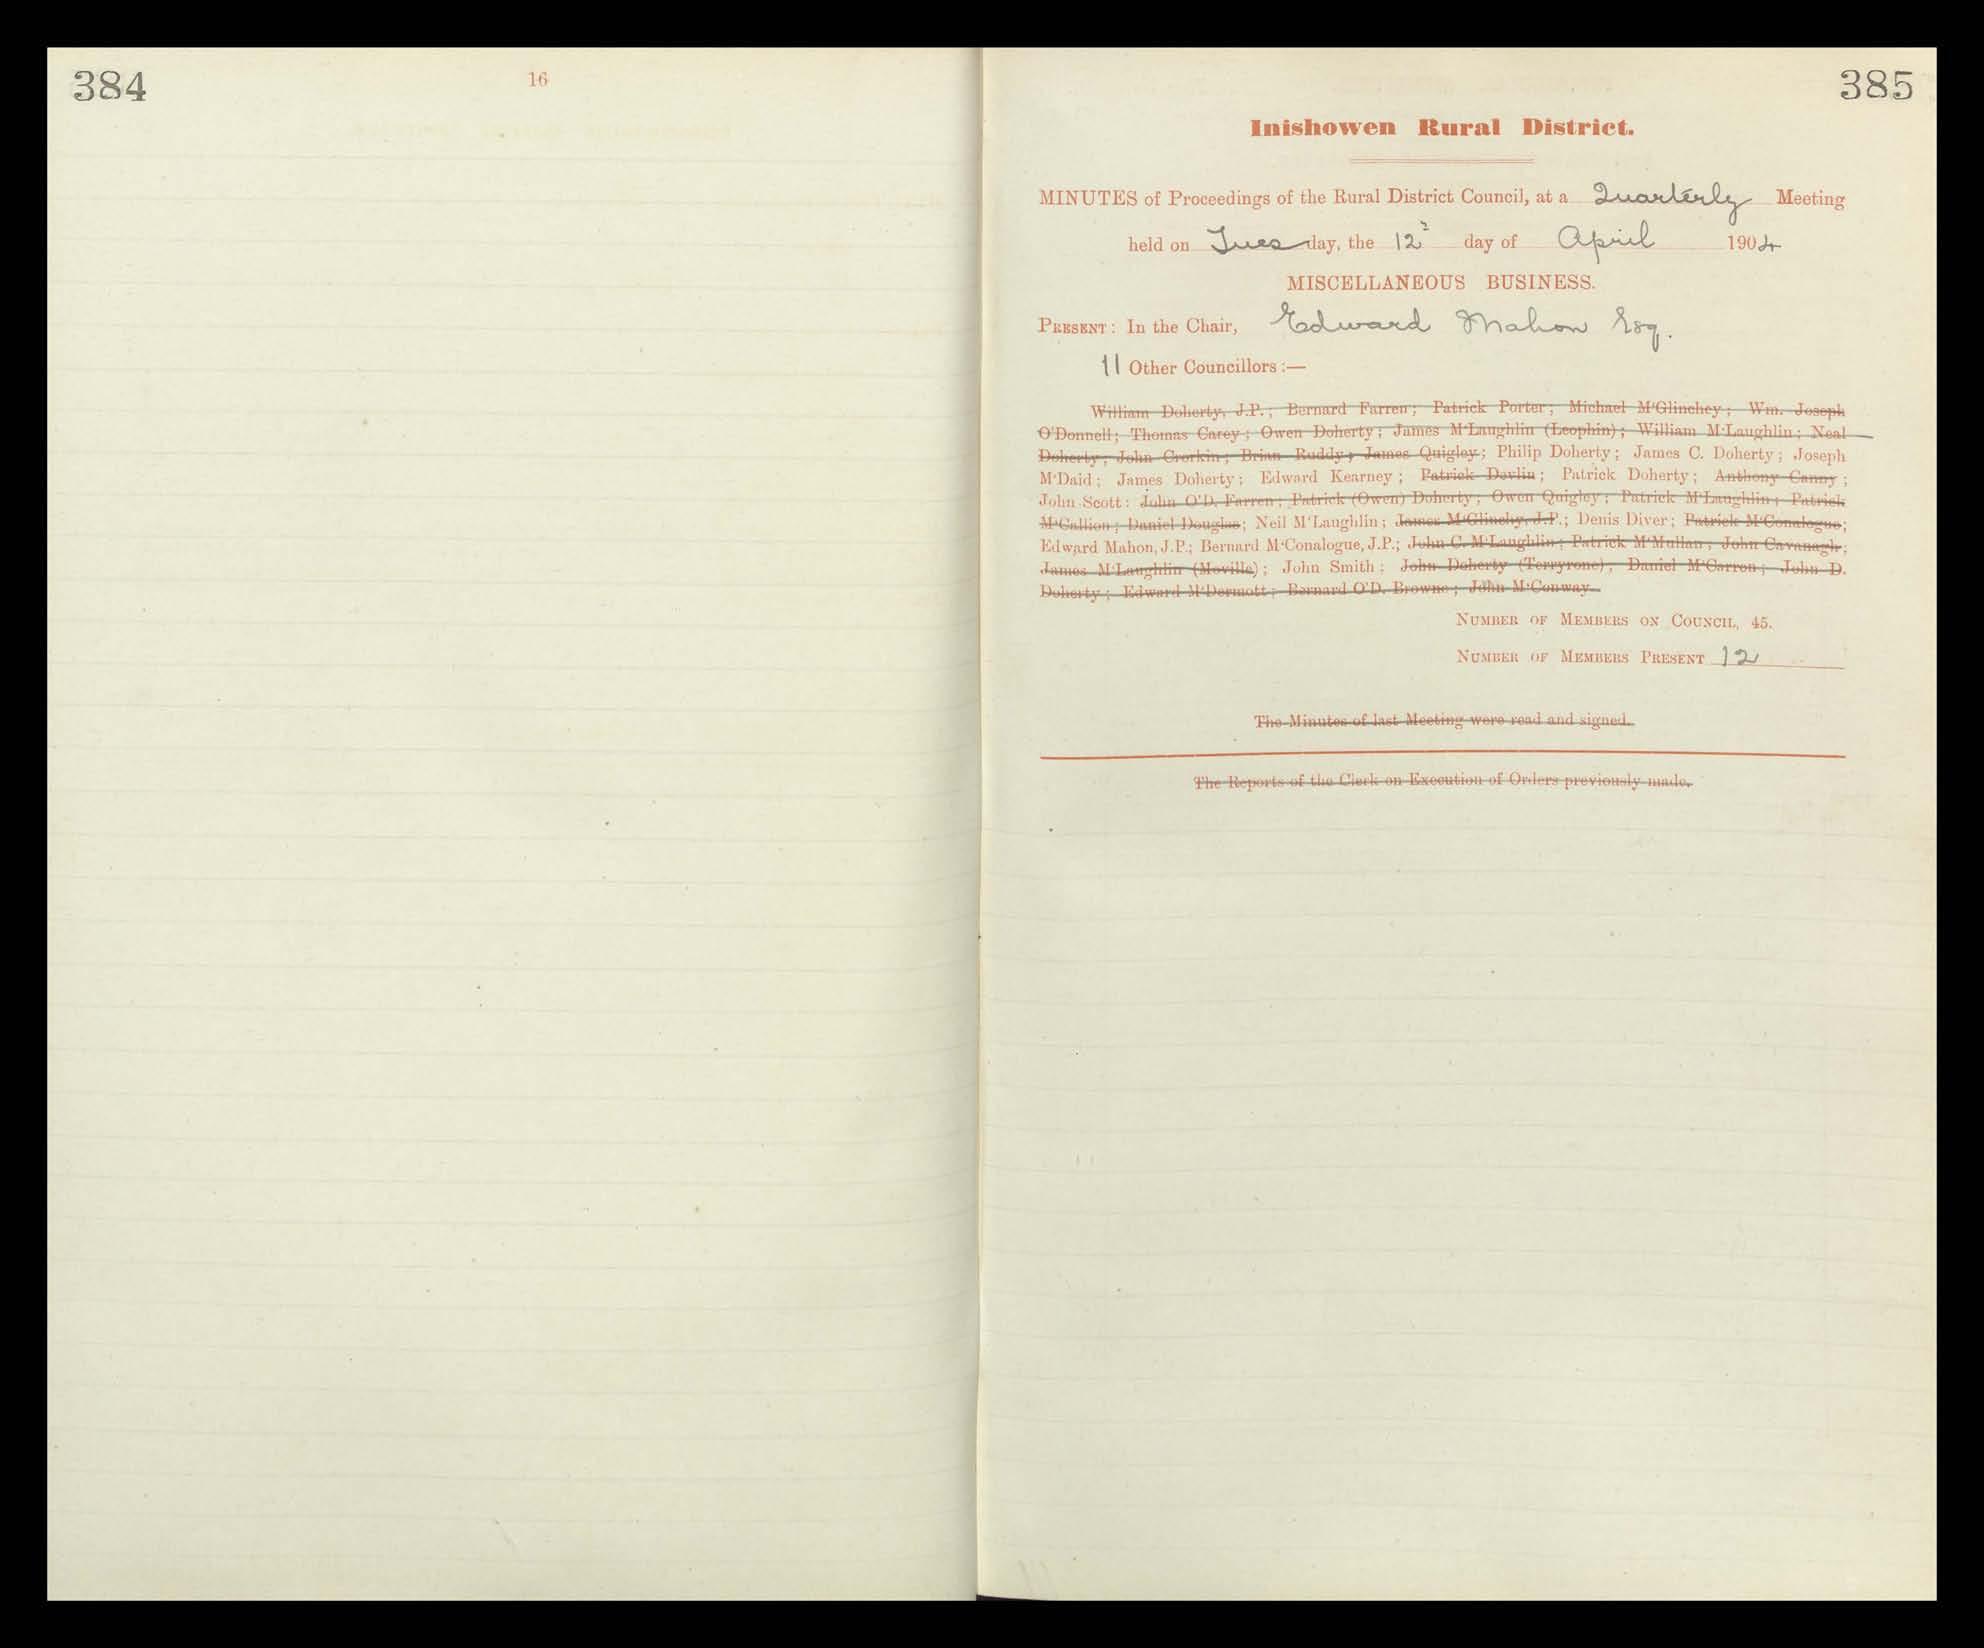 384
16
385
Inishowen Rural District.
MINUTES of Proceedings of the Rural District Council, at a Quarterly Meeting
held on Tuesday, the 12 day of April 1904
MISCELLANEOUS BUSINESS.
PRESENT: In the Chair, Edward Mahon Esq.
11 Other Councillors :—
William Doherty, J.P.; Bernard Farren; Patrick Porter; Michael M'Glinchey; Wm. Joseph
O'Donnell; Thomas Carey; Owen Doherty; James M'Laughlin (Leophin); William M'Laughlin; Neal
Doherty; John Crorkin; Brian Ruddy; James Quigley; Philip Doherty; James C. Doherty; Joseph
M'Daid; James Doherty; Edward Kearney; Patrick Devlin; Patrick Doherty; Anthony Canny;
John Scott: John O'D. Farren; Patrick (Owen) Doherty; Owen Quigley; Patrick M'Laughlin; Patrick
M'Callion; Daniel Douglas; Neil M'Laughlin; James M'Glinchy, J.P.; Denis Diver; Patrick M'Conalogue;
Edward Mahon, J.P.; Bernard M'Conalogue, J.P.; John C. M'Laughlin; Patrick M'Mullan; John Cavanagh;
James M'Laughlin (Moville); John Smith; John Doherty (Terryrone); Daniel M'Carron; John D.
Doherty; Edward M'Dermott; Bernard O'D. Browne; John M'Conway.
NUMBER OF MEMBERS ON COUNCIL, 45.
NUMBER OF MEMBERS PRESENT 12
The Minutes of last Meeting were read and signed.
The Reports of the Clerk on Execution of Orders previously made.